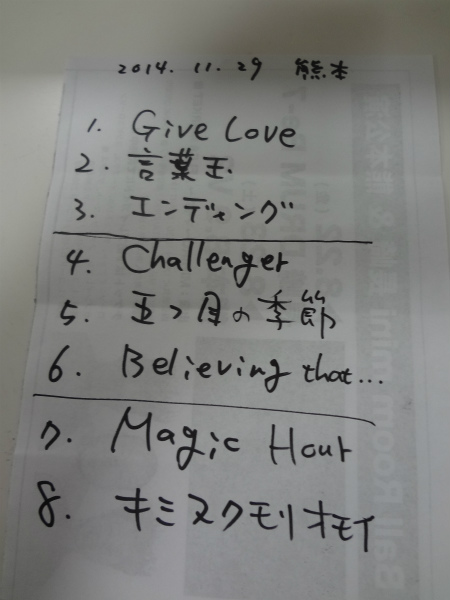 2014. 11. 29 熊本
1. Give Love
2. 言葉王
3. エンディング
4. Challenger
5. 五つ目の季節
6. Believing that...
7. Magic Hour
8. キミヌクモリオモイ